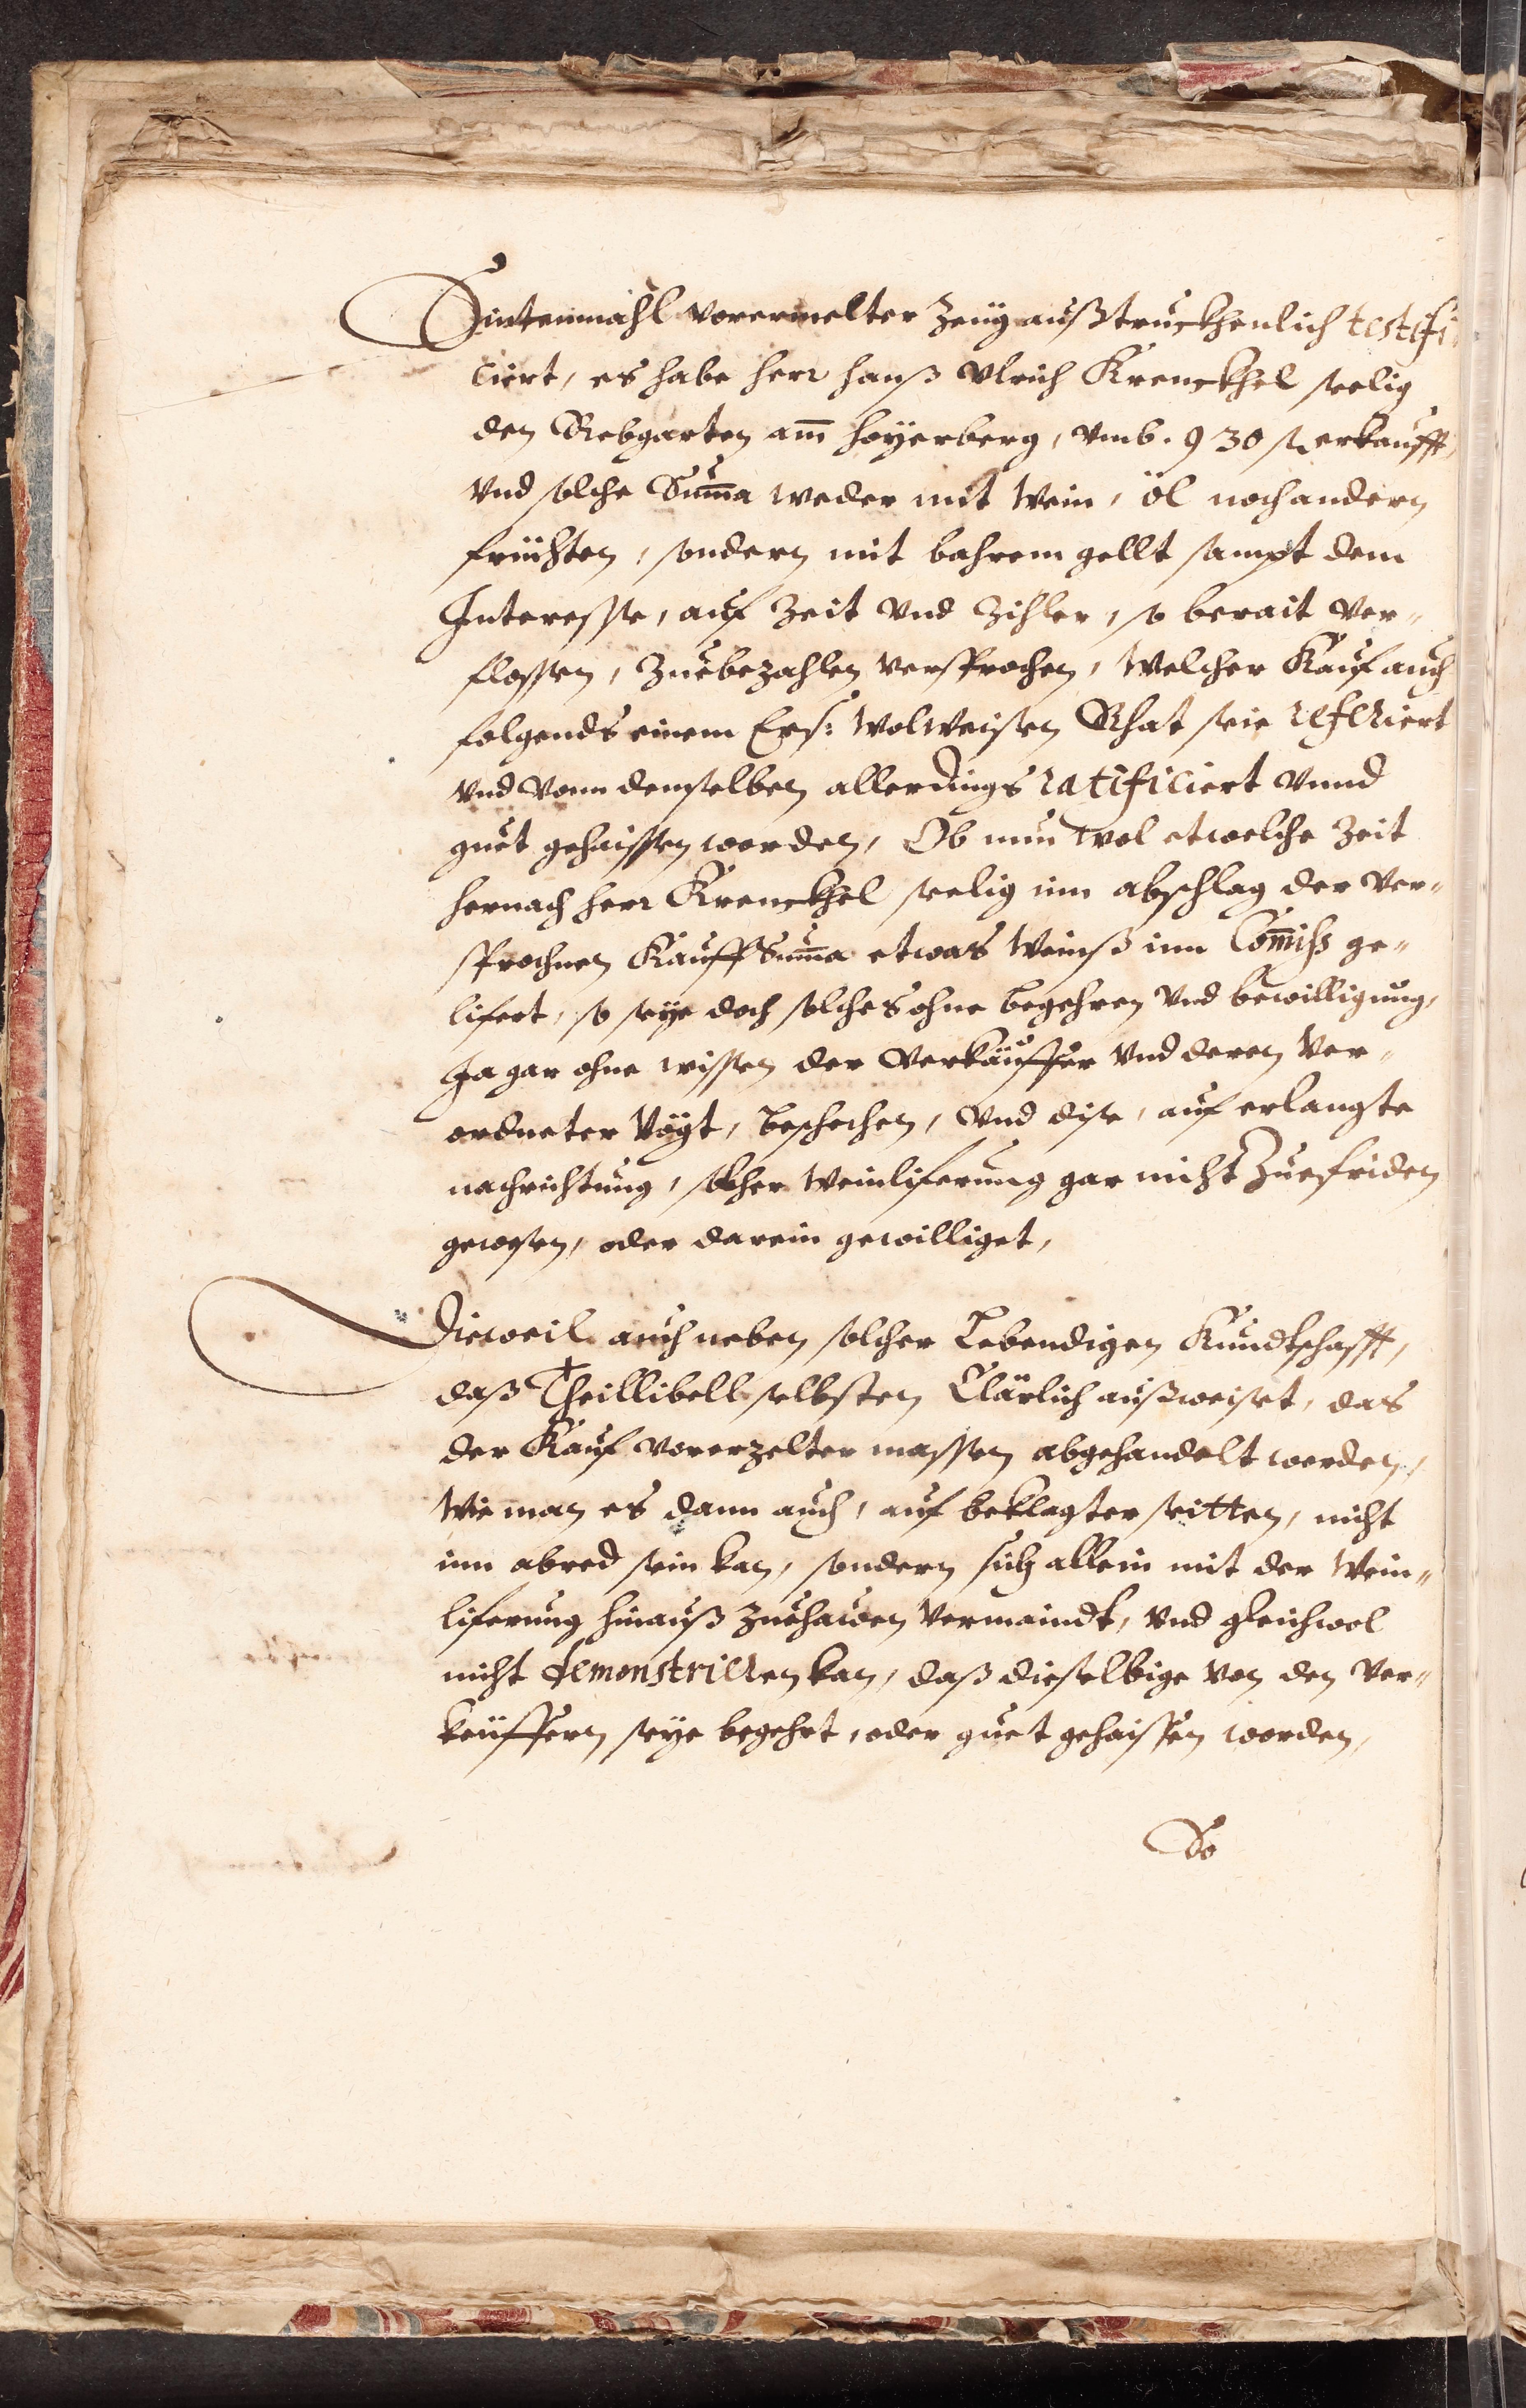 Sintenmahl vorermelter Zeug außtruckhenlich testifi-
ciert, es habe herr Hanß Vlrich Krenckhel seelig
den Rebgarten am̄ Hoyerberg, vmb. 930 fl erkaufft,
vnd solche Sum̄a weder mit Wein, öl noch andern
früchten, sondern mit bahrem gellt sampt dem
Interesse, auf Zeit vnd Zihler, so berait ver-
flossen, Zuebezahlen versprochen, Welcher Kauf auch
folgends einem Ers: WolWeisen Rhat seie referiert
vnd vonn demselben allerdings ratificiert vnnd
guet gehaissen worden, Ob nun wol etwelche Zeit
hernach herr Krenckhel seelig inn abschlag der ver-
sprochnen Kauffsum̄a etwas Weinß inn Com̄iß ge-
lifert, so seye doch solches ohne begehren vnd bewilligung,
Ja gar ohne wissen der Verkäuffer vnd deren ver-
ordneter Vögt, beschechen, vnd dise, auf erlangte
nachrichtung, solcher Weinliferung gar nicht Zuefriden
gewesen, oder darein gewilliget,
Dieweil auch neben solcher Lebendigen Kundtschafft,
daß Theillibell selbsten Clärlich außweiset, das
der Kauf vorerzelter massen abgehandelt worden,
Wie man es dann auch, auf beklagter seitten, nicht
inn abred sein kan, sondern sich allein mit der Wein-
liferung hinauß Zuehawen vermaindt, vnd gleichwol
nicht demonstrieren kan, daß dieselbige von den Ver-
keüffern seye begehrt, oder guet gehaissen worden,
So